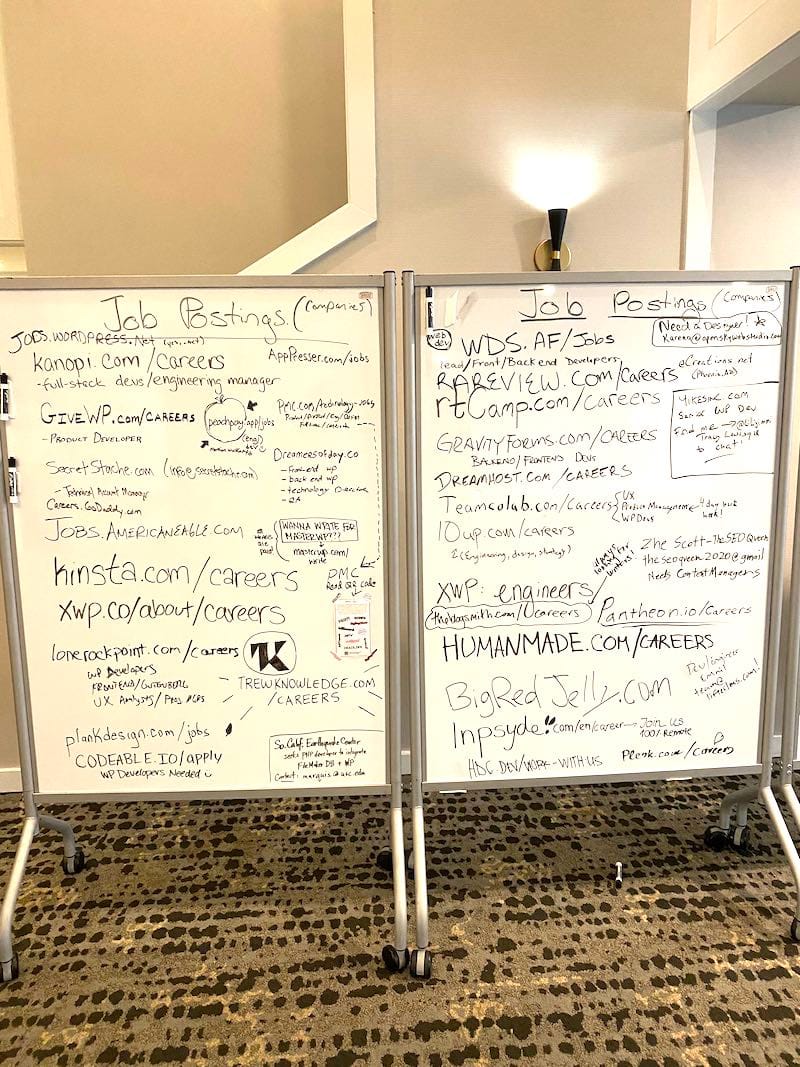 Job Postings (Companies)
JOBS.WORDPRESS.Net
kanopi.com/careers
AppPresser.com/jobs
-full-stack devs/engineering manager
GiveWP.com/CAREERS
- PRODUCT DEVELOPER
peachpay.app/jobs
PMC.com/technology-jobs
SecretStache.com (info@secretstache.com)
- Technical Account Manager
Careers.GoDaddy.com
Dreamersofday.co
- front-end wp
- back end wp
- technology
- QA
JOBS.AMERICANEAGLE.COM
WANNA WRITE FOR
MASTERWP???
masterwp.com/
write
kinsta.com/careers
PMC
Read QR code
xwp.co/about/careers
lonerockpoint.com/careers
WP Developers
FRONTEND/GUTENBERG
UX Analysts/
TK
TREWKNOWLEDGE.COM
/CAREERS
plankdesign.com/jobs
CODEABLE.IO/apply
WP Developers Needed
So. Calif. Earthquake Center
seeks PHP developer to integrate
FileMaker DB + WP
Contact:
Job Postings (Companies)
web
dev
WDS.AF/Jobs
Lead/Front/Back end Developers
Need a Designer!
RAREVIEW.COM/CAREERS
eCreations.net
(Phoenix, AZ)
rtCamp.com/careers
YIKESINC.COM
Senior WP Dev
to chat!
GRAVITYFORMS.COM/CAREERS
BACKEND/FRONTEND DEVS
DREAMHOST.COM/CAREERS
Teamcolab.com/Careers
UX
Product Management
WP Devs
4 day work
week!
10up.com/careers
(Engineering, design, strategy)
always
looking for
writers!
Zhe Scott-The SEO Queen
theseoqueen2020@gmail
Needs Content Managers
XWP: engineers
theblogsmith.com/careers
Pantheon.io/careers
HUMANMADE.COM/CAREERS
BigRedJelly.com
Dev/Engineer
Email
Inpsyde.com/en/career → Join us
100% Remote
HDC.DEV/WORK-WITH-US
Plenk.co.uk/careers